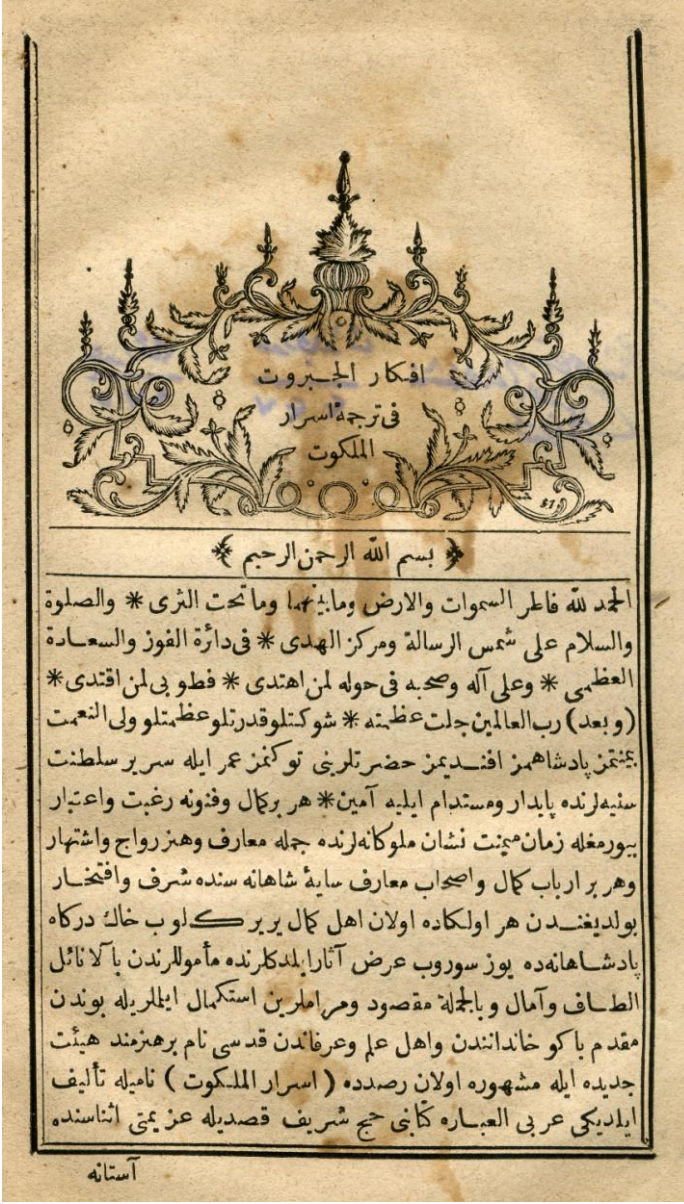 افكار الجبروت
فى ترجمۀ اسرار
الملكوت
﴿ بسم الله الرحمن الرحيم ﴾
الحمد لله فاطر السموات والارض وما بينهما وما تحت الثرى * والصلوة
والسلام على شمس الرسالة ومركز الهدى * فى دائرة الفوز والسعادة
العظمى * وعلى آله وصحبه فى حوله لمن اهتدى * فطوبى لمن اقتدى *
(وبعد) رب العالمين جلت عظمته * شوكتلو قدرتلو عظمتلو ولى النعمت
بيمنتمز پادشاهمز افنديمز حضرتلرينى توكنمز عمر ايله سرير سلطنت
سنيه لرنده پايدار ومستدام ايليه آمين * هر بر كمال وفنونه رغبت واعتبار
بيورمغله زمان ميمنت نشان ملوكانه لرنده جمله معارف وهنر رواج واشتهار
وهر بر ارباب كمال واصحاب معارف سايۀ شاهانه سنده شرف وافتخار
بولديغندن هر اولكاده اولان اهل كمال يرير كلوب خاك دركاه
پادشاهانه ده يوز سوروب عرض آثار ايلدكلرنده مأمول لرندن بالا نائل
الطاف وآمال وبالجملة مقصود ومراملرين استكمال ايلملريله بوندن
مقدم باكو خانداندن واهل علم وعرفاندن قدسى نام بر هنرمند هيئت
جديده ايله مشهوره اولان رصدده ( اسرار الملكوت ) ناميله تأليف
ايلديكى عربى العباره كتابنى حج شريف قصديله عزيمتى اثناسنده
آستانه